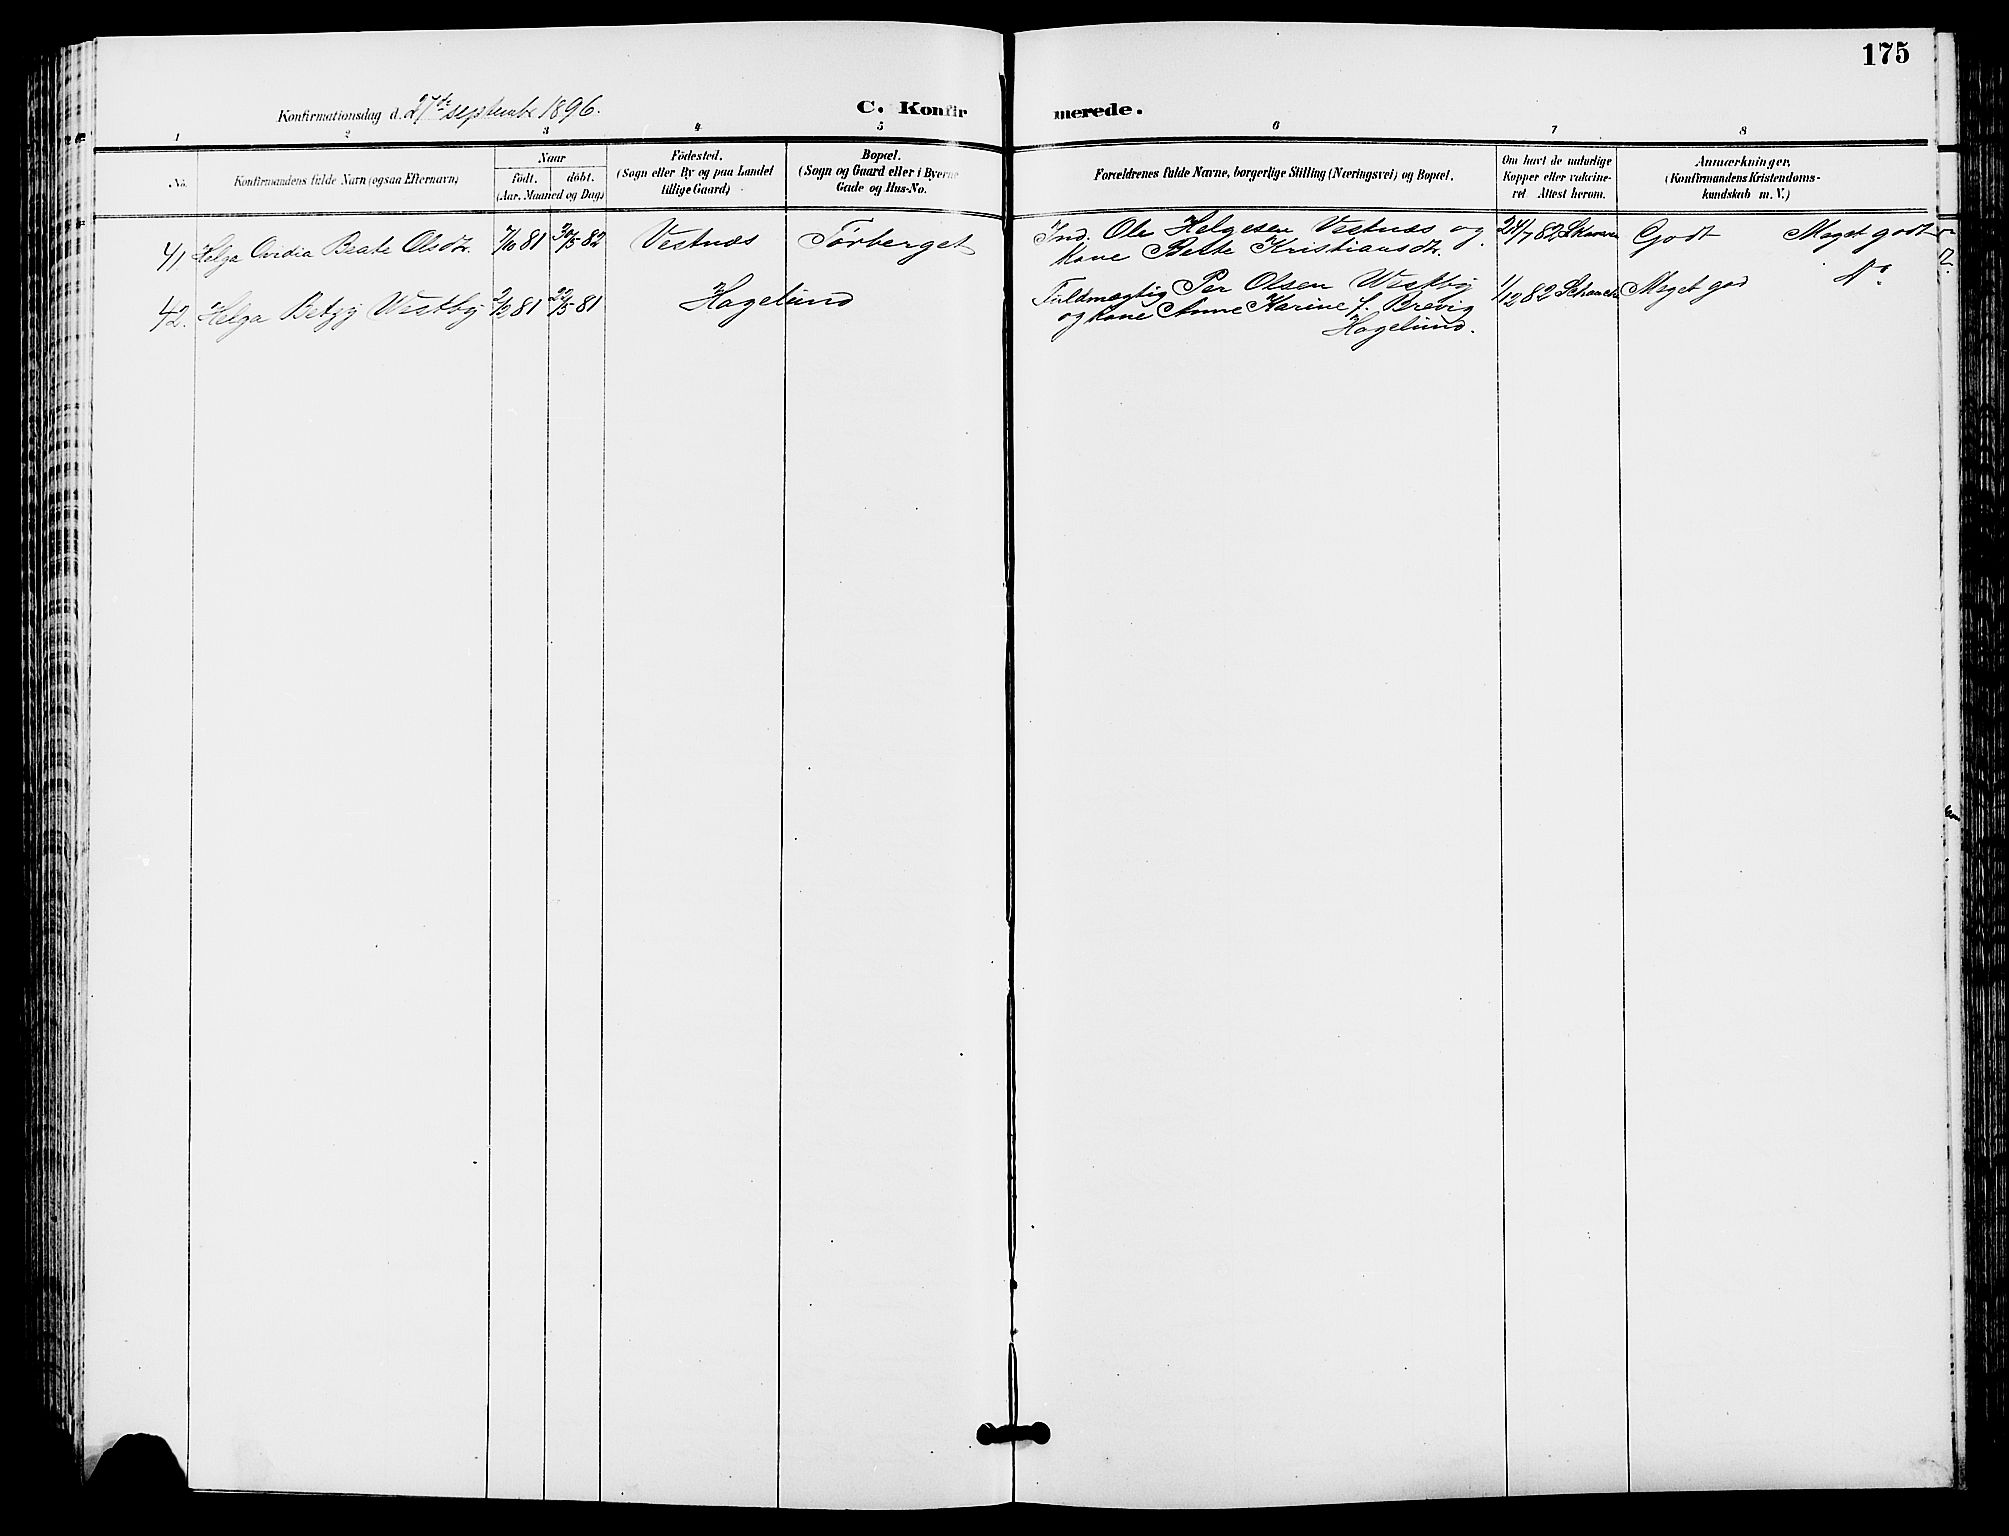 175
Konfirmationsdag d. 27de septembr 1896. C. Konfir merede.
1 2 3 4 5 6 7 8
No. Konfirmandens fulde Navn (ogsaa Efternavn) Naar födt. döbt. (Aar, Maaned og Dag) Födested. (Sogn eller By og paa Landet tillige Gaard) Bopæl. (Sogn og Gaard eller i Byerne Gade og Hus-No. Forældrenes fulde Navne, borgerlige Stilling (Næringsvei) og Bopæl. Om havt de naturlige Kopper eller vakcineret Attest herom. Anmærkninger, (Konfirmandens Kristendomskundskab m. V.)
41 Helga Ovidia Beate Olsdtr. 7/10 81 30/5 82 Vestnæs Törberget Ind. Ole Helgesen Vestnæs og 24/7 82 Godt Meget godt
kone Beate Kristiansdtr.
42. Helga Betzy Westby 2/2 81 22/5 81 Hagelund Fuldmægtig Per Olsen Westby 1/12 82 Meget god
og kone Anne Karine f. Brevig
Hagelund.